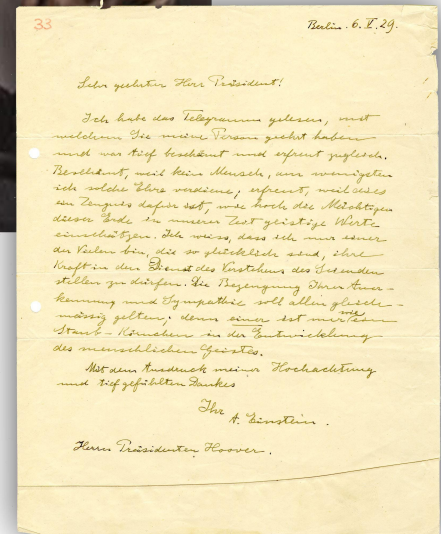 33
Berlin. 6. V. 29.
Sehr geehrter Herr Präsident!
Ich habe das Telegramm gelesen, mit
welchem Sie meine Person geehrt haben
und war tief beschämt und erfreut zugleich.
Beschämt, weil kein Mensch, am wenigsten
ich solche Ehre verdiene, erfreut, weil es
ein Zeugnis dafür ist, wie hoch die Mächtigen
dieser Erde in unserer Zeit geistige Werte
einschätzen. Ich weiss, dass ich nur einer
der Vielen bin, die so glücklich sind, ihre
Kraft in den Dienst des Verstehens des Seienden
stellen zu dürfen. Die Bezeugung Ihrer Aner-
kennung und Sympathie soll allen gleich-
mässig gelten; denn einer ist nur wie ein
Staub-Körnchen in der Entwickelung
des menschlichen Geistes.
Mit dem Ausdruck meiner Hochachtung
und tief gefühlten Dankes
Ihr
A. Einstein.
Herrn Präsidenten Hoover.